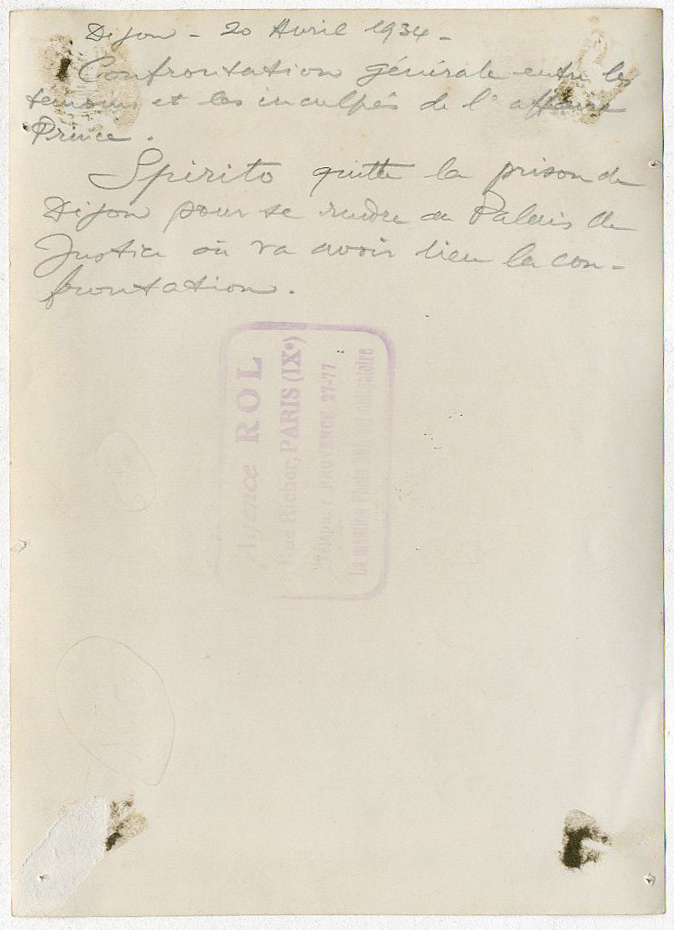 Dijon - 20 Avril 1934 -
Confrontation générale entre les
témoins et les inculpés de l'affaire
Prince.
Spirito quitte la prison de
Dijon pour se rendre au Palais de
Justice où va avoir lieu la con-
frontation.
Agence ROL
Rue Richer, PARIS (IXe)
Téléphone PROVENCE 27-77
La mention Photo Rol est obligatoire